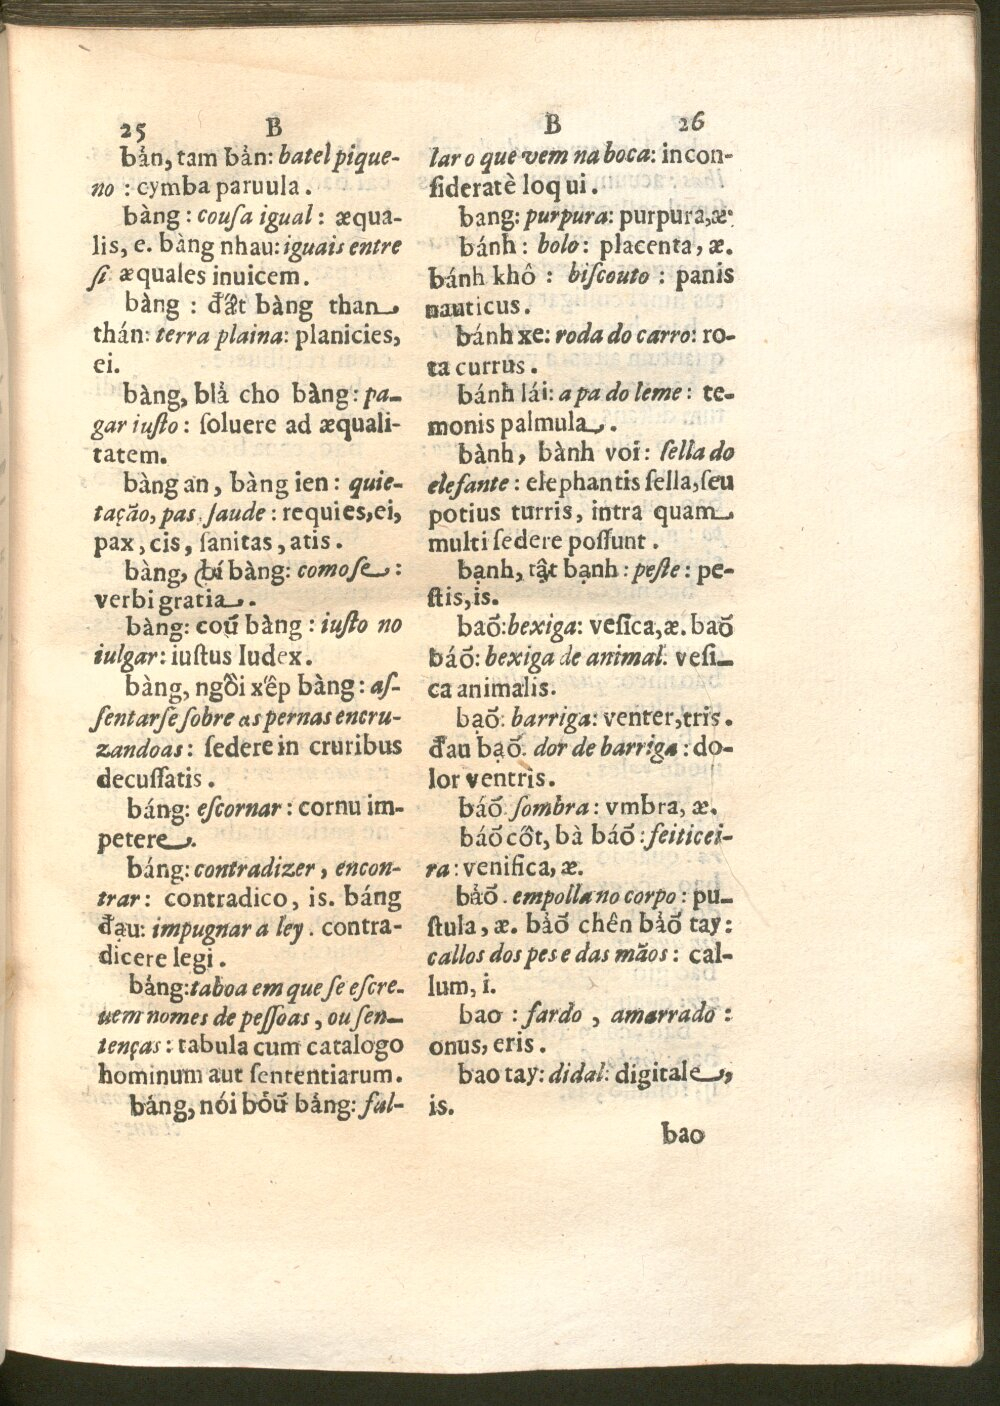 25 B
bản, tam bản: batel pique-
no : cymba paruula .
bàng : couſa igual : æqua-
lis, e. bàng nhau: iguais entre
ſi æquales inuicem .
bàng : đất bàng than
thán: terra plaina: planicies,
ei.
bàng, blả cho bàng: pa-
gar iuſto : ſoluere ad æquali-
tatem.
bàng an, bàng ien : quie-
tação, pas, ſaude : requies, ei,
pax, cis, ſanitas, atis .
bàng, bí bàng: como ſe :
verbi gratia .
bàng: coũ bàng : iuſto no
iulgar: iuſtus Iudex .
bàng, ngồi xếp bàng : aſ-
ſentarſe ſobre as pernas encru-
zandoas : ſedere in cruribus
decuſſatis .
báng: eſcornar : cornu im-
petere .
báng: contradizer, encon-
trar : contradico, is. báng
đạu: impugnar a ley . contra-
dicere legi .
bảng: taboa em que ſe eſcre-
uem nomes de peſſoas, ou ſen-
tenças : tabula cum catalogo
hominum aut ſententiarum.
bảng, nói bỏũ bảng: fal-
B 26
lar o que vem na boca: incon-
ſideratè loqui .
bang: purpura: purpura, æ.
bánh : bolo : placenta, æ.
bánh khô : biſcouto : panis
nauticus .
bánh xe: roda do carro: ro-
ta currus .
bánh lái : a pa do leme : te-
monis palmula .
bành, bành voi : ſella do
elefante : elephantis ſella, ſeu
potius turris, intra quam
multi ſedere poſſunt .
bạnh, tật bạnh : peſte : pe-
ſtis, is.
baõ: bexiga: veſica, æ. baõ
báõ: bexiga de animal: veſi-
ca animalis.
bạõ: barriga: venter, tris .
đau bạõ. dor de barriga : do-
lor ventris.
báõ. ſombra : vmbra, æ.
báõ cốt, bà báõ : feiticei-
ra : venifica, æ.
bảõ . empolla no corpo : pu-
ſtula, æ. bảõ chên bảõ tay :
callos dos pes e das mãos : cal-
lum, i.
bao : fardo , amarrado :
onus, eris .
bao tay: didal: digitale,
is.
bao